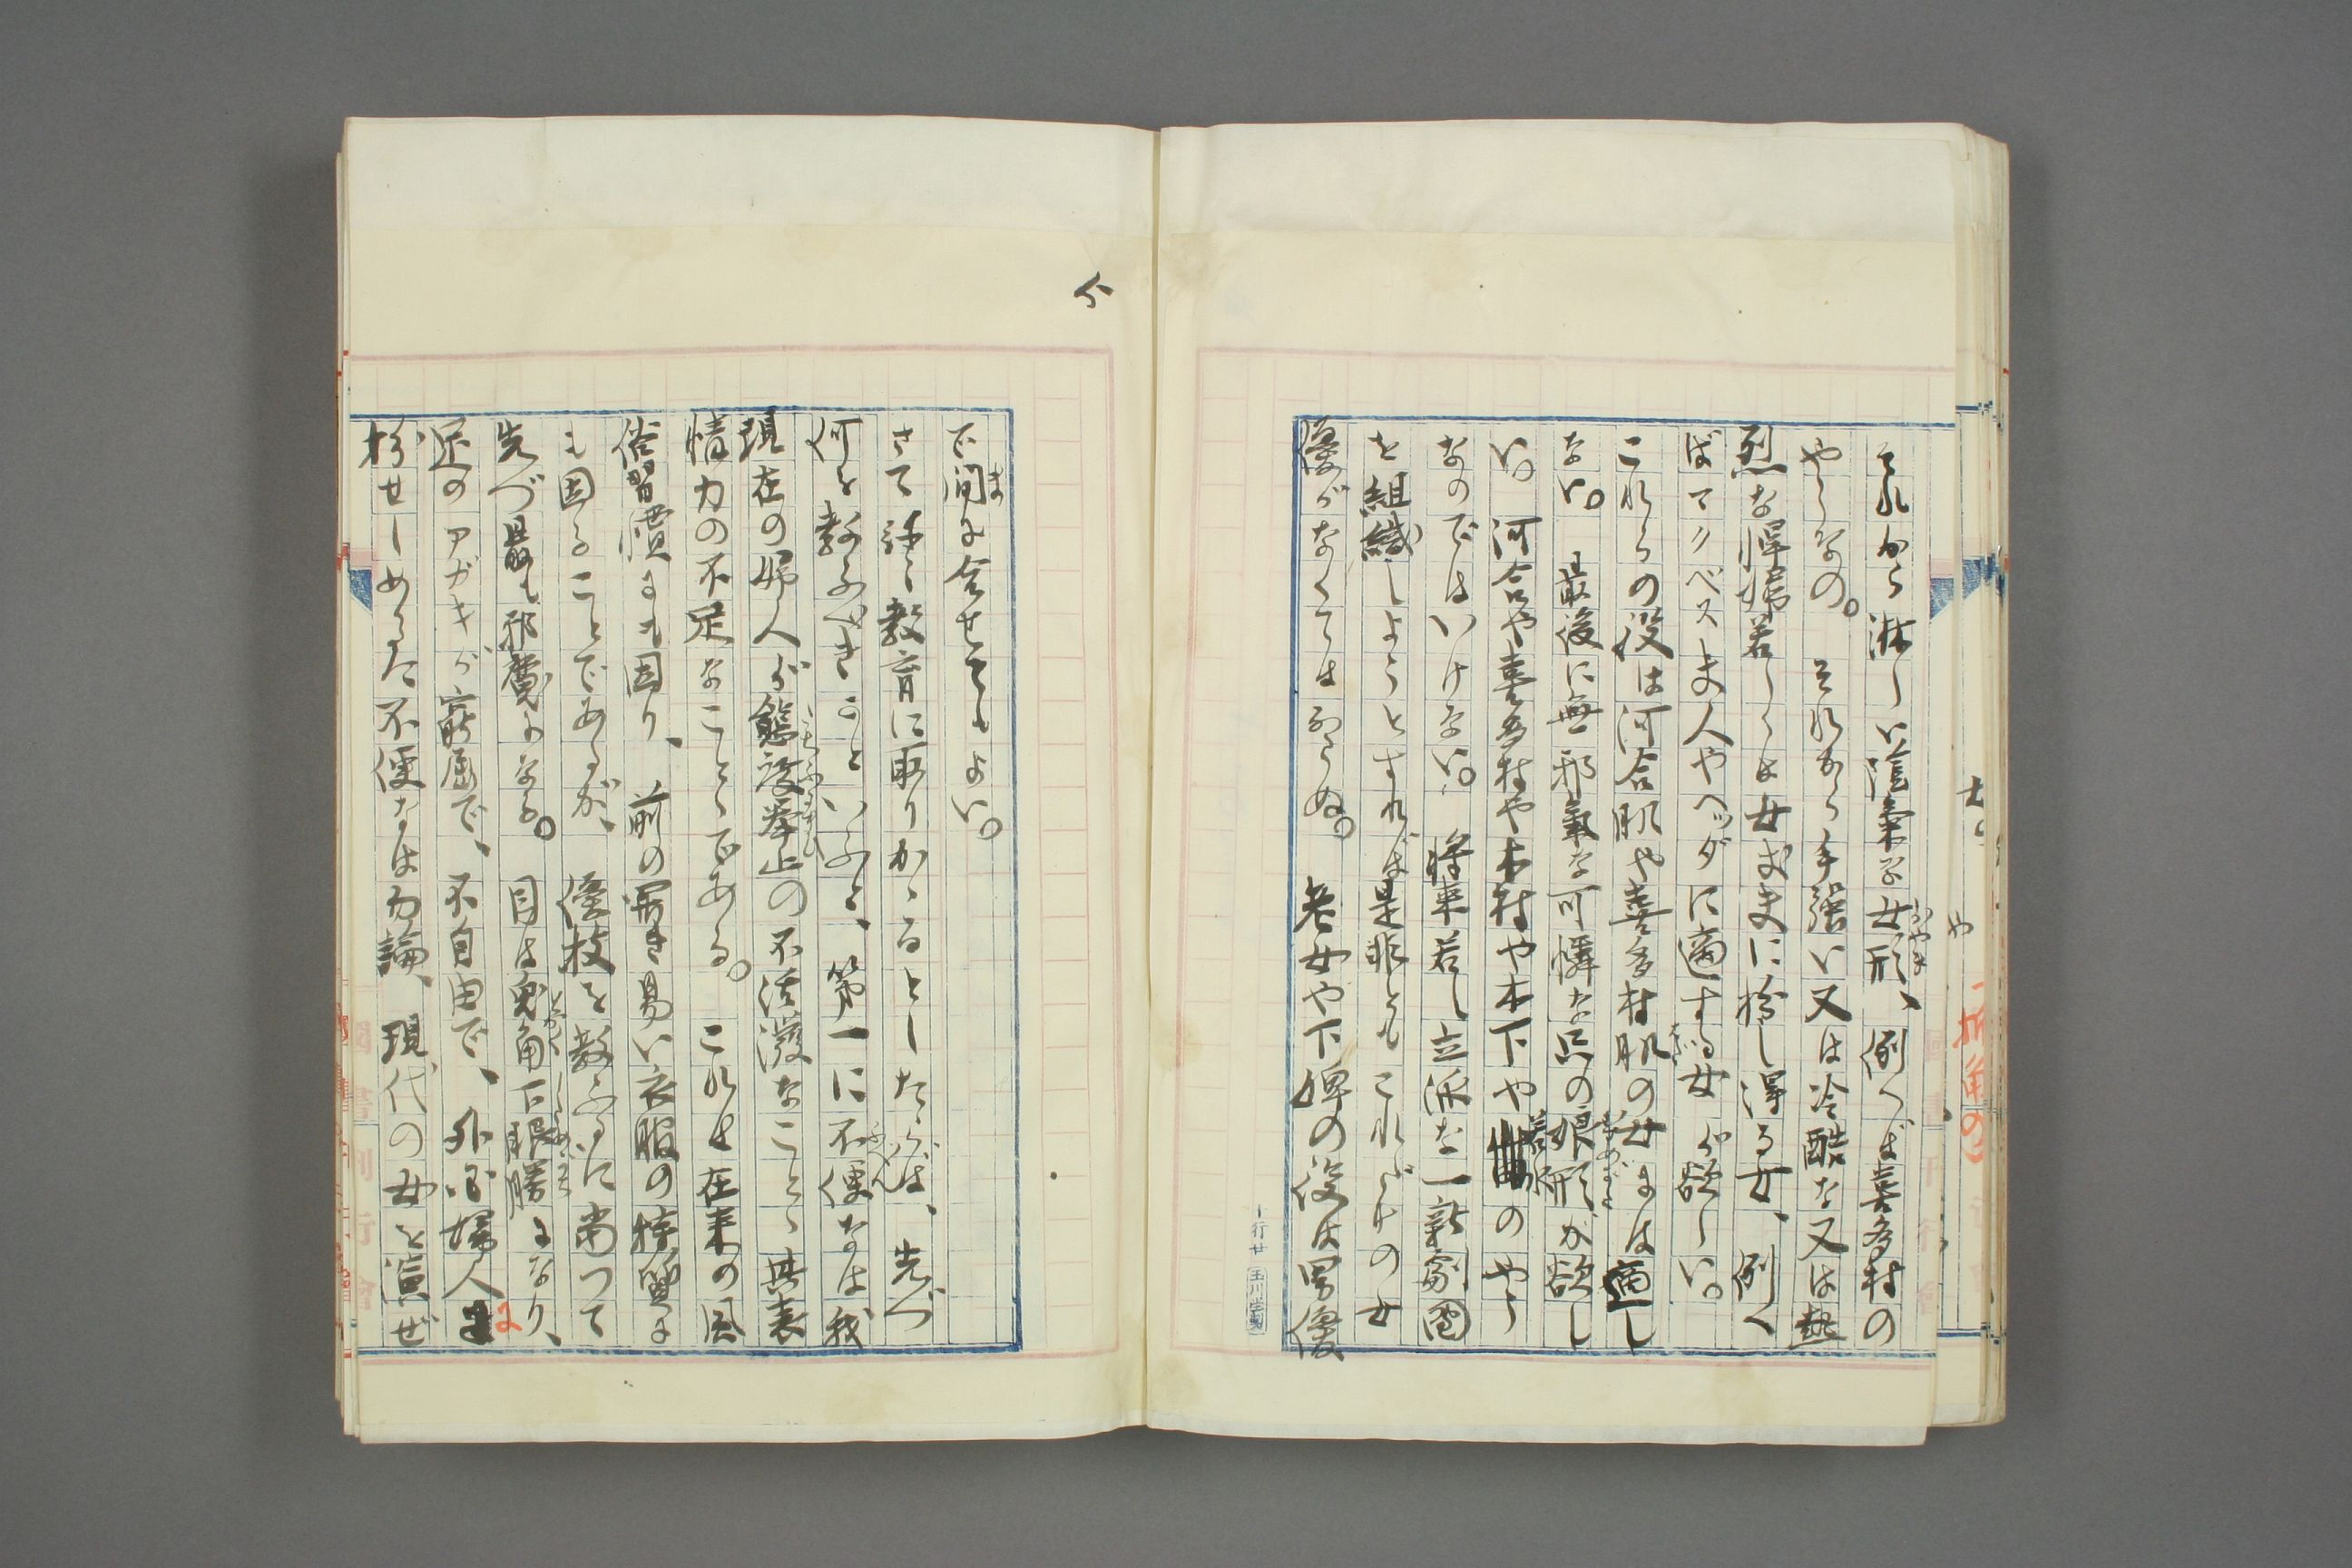 それから淋しい陰気な女形、例へば喜多村の
やうなの。それから手強い又は冷酷な又は熱
烈な悍婦若しくは女丈夫に扮し得る女、例へ
ばマクベス夫人やヘッダに適する女が欲しい。
これらの役は河合肌や喜多村肌の女には適し
ない。最後に無邪氣な可憐な只の娘形が欲し
い。河合や喜多村や木村や木下や若水のやう
なのではいけない。將来若し立派な一新劇團
を組織しようとすれば是非ともこれだけの女
優がなくてはならぬ。老女や下婢の役は男優
十行廿 玉川堂製
で間に合せてもよい。
さて話し教育に取りかゝるとしたらば、先づ
何を教ふべきかといふと、第一に不便なは我
現在の婦人が態度挙止の不活溌なこと、其表
情力の不足なことゝである。これは在来の風
俗習慣にも因り、前の開き易い衣服の特質に
も因ることであるが、優技を教ふるに當つて
先づ最も邪魔になる。目は兎角下眼勝になり、
足のアガキが窮屈で、不自由で、外国婦人に
扮せしめるに不便なは勿論、現代の女を演ぜ